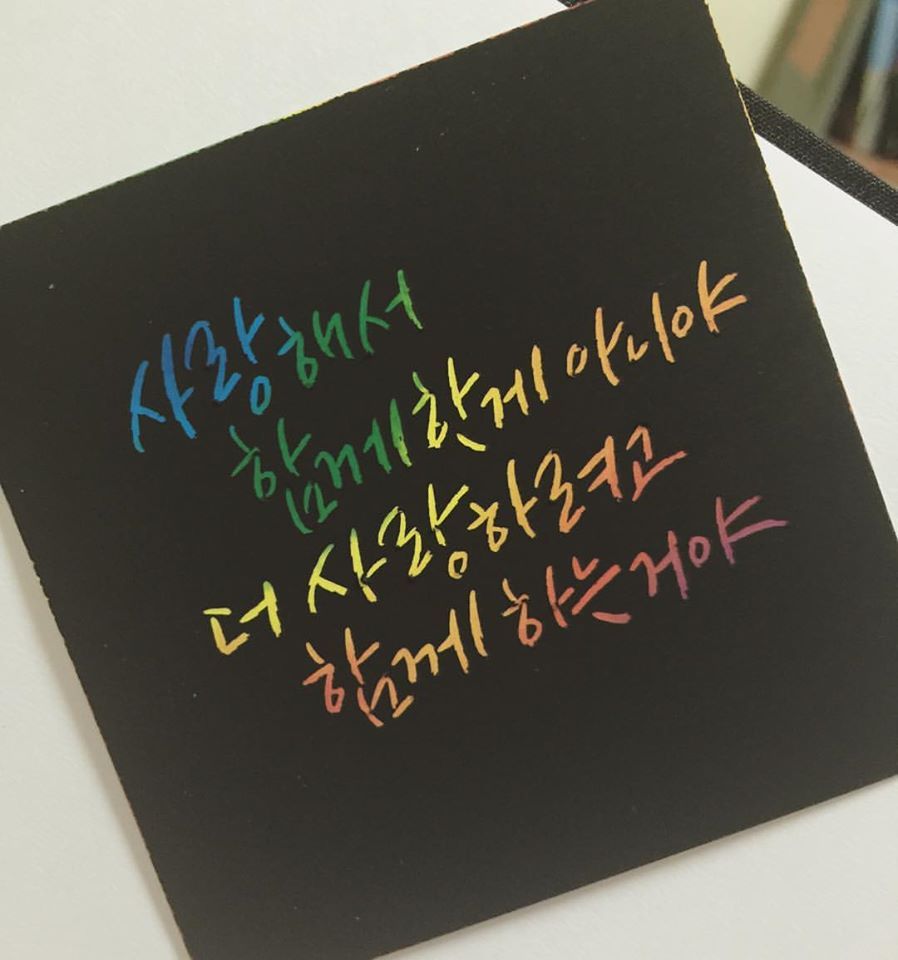 사랑해서
함께한게 아니야
더 사랑하려고
함께 하는거야